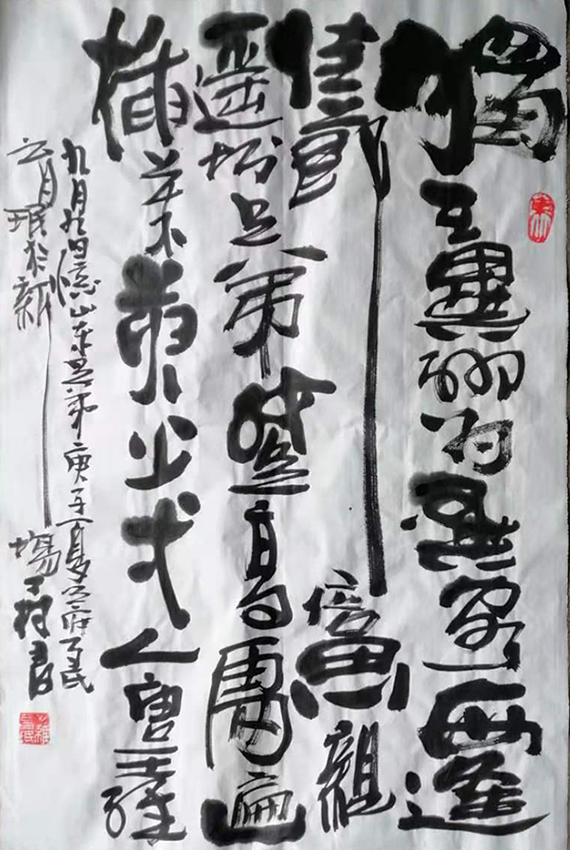 獨在異鄉為異客每逢
佳節倍思親
遙知兄弟登高處遍
插茱萸少弌人唐王維
九月九日憶山東兄弟庚子夏
五月於新